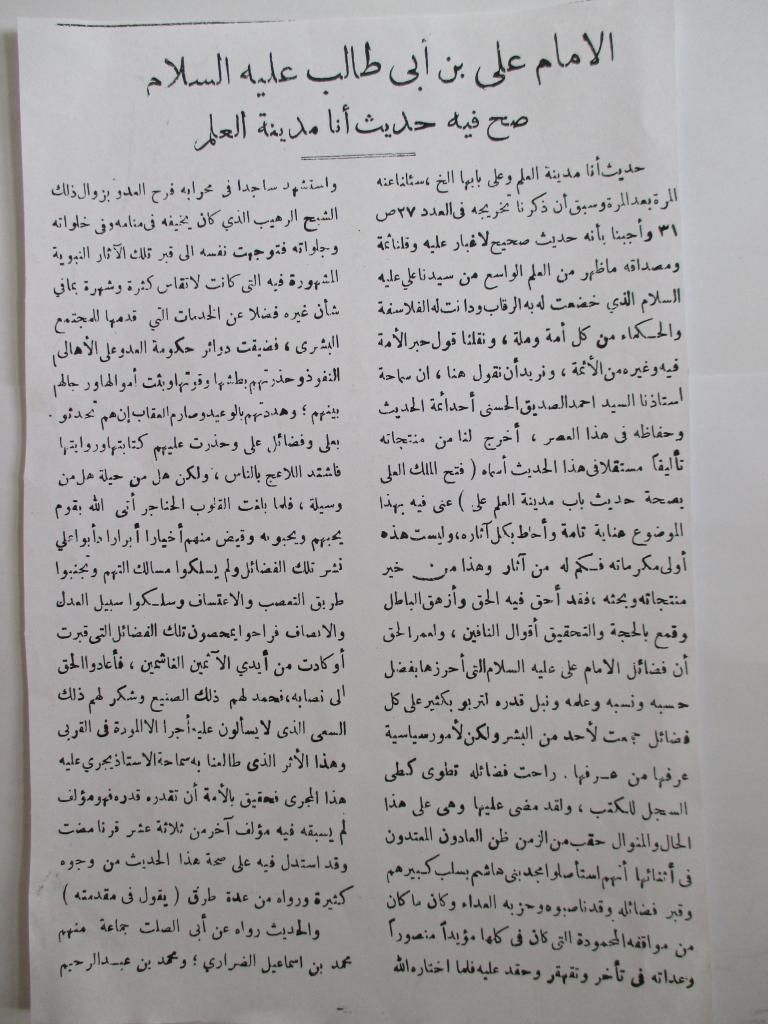 الامام علي بن أبي طالب عليه السلام
صح فيه حديث أنا مدينة العلم
حديث أنا مدينة العلم وعلى بابها الخ ، سئلنا عنه
المرة بعد المرة وسبق أن ذكرنا تخريجه فى العدد ٢٧ ص
٣١ وأجبنا بأنه حديث صحيح لا غبار عليه وقلنا ثمة
ومصداقه ماظهر من العلم الواسع من سيدنا على عليه
السلام الذي خضعت له به الرقاب ودانت له الفلاسفة
والحكماء من كل أمة وملة ، ونقلنا قول حبر الأمة
فيه وغيره من الأئمة ، ونريد أن نقول هنا ، ان سماحة
استاذنا السيد احمد الصديق الحسنى أحد أئمة الحديث
وحفاظه فى هذا العصر ، أخرج لنا من منتجاته
تأليفاً مستقلا فى هذا الحديث أسماه ( فتح الملك العلى
بصحة حديث باب مدينة العلم على ) عنى فيه بهذا
الموضوع عناية تامة وأحاط بكل آثاره ، وليست هذه
أولى مكرماته فكم له من آثار وهذا من خير
منتجاته وبحثه ، فقد أحق فيه الحق وأزهق الباطل
وقمع بالحجة والتحقيق أقوال النافين ، ولعمر الحق
أن فضائل الامام على عليه السلام التى أحرزها بفضل
حسبه ونسبه وعلمه ونبل قدره لتربو بكثير على كل
فضائل جمعت لأحد من البشر ولكن لأمور سياسية
عرفها من عرفها . راحت فضائله تطوى كطى
السجل للكتب ، ولقد مضى عليها وهى على هذا
الحال والمنوال حقب من الزمن ظن العادون المعتدون
فى أثنائها أنهم استأصلوا مجد بنى هاشم بسلب كبيرهم
وقبر فضائله وقد ناصبوه وحزبه العداء وكان ما كان
من مواقفه المحمودة التى كان فى كلها مؤيداً منصوراً
وعداته فى تأخر وتقهقر وحقد عليه فلما اختاره الله
واستشهد ساجدا فى محرابه فرح العدو بزوال ذلك
الشبح الرهيب الذي كان يخيفه فى منامه وفى خلواته
وجلواته فتوجهت نفسه الى قبر تلك الآثار النبوية
المشهورة فيه التى كانت لاتقاس كثرة وشهرة بما في
شأن غيره فضلا عن الخدمات التي قدمها للمجتمع
البشرى ، فضيقت دوائر حكومة العدو على الأهالى
النفوذ وحذرتهم بطشها وقوتها وبثت أموالها ورجالها
بينهم ؛ وهددتهم بالوعيد وصارم العقاب إن هم تحدثو
بعلى وفضائل على وحذرت عليهم كتابتها وروايتها
فاشتد اللاعج بالناس ، ولكن هل من حيلة هل من
وسيلة ، فلما بلغت القلوب الحناجر أتى الله بقوم
يحبهم ويحبونه وقيض منهم أخيارا أبرارا دأبوا على
نشر تلك الفضائل ولم يسلكوا مسالك التهم وتجنبوا
طريق التعصب والاعتساف وسلكوا سبيل العدل
والانصاف فراحوا يمحصون تلك الفضائل التى قبرت
أو كادت من أيدي الآثمين الغاشمين ، فأعادوا الحق
الى نصابه ، فحمد لهم ذلك الصنيع وشكر لهم ذلك
السعى الذى لايسألون عليه أجرا الا المودة فى القربى
وهذا الأثر الذى طالعنا به سماحة الاستاذ يجري عليه
هذا المجرى فحقيق بالأمة أن تقدره قدره فهو مؤلف
لم يسبقه فيه مؤلف آخر من ثلاثة عشر قرنا مضت
وقد استدل فيه على صحة هذا الحديث من وجوه
كثيرة ورواه من عدة طرق ( يقول فى مقدمته )
والحديث رواه عن أبى الصلت جماعة منهم
محمد بن اسماعيل الضراري ؛ ومحمد بن عبد الرحيم